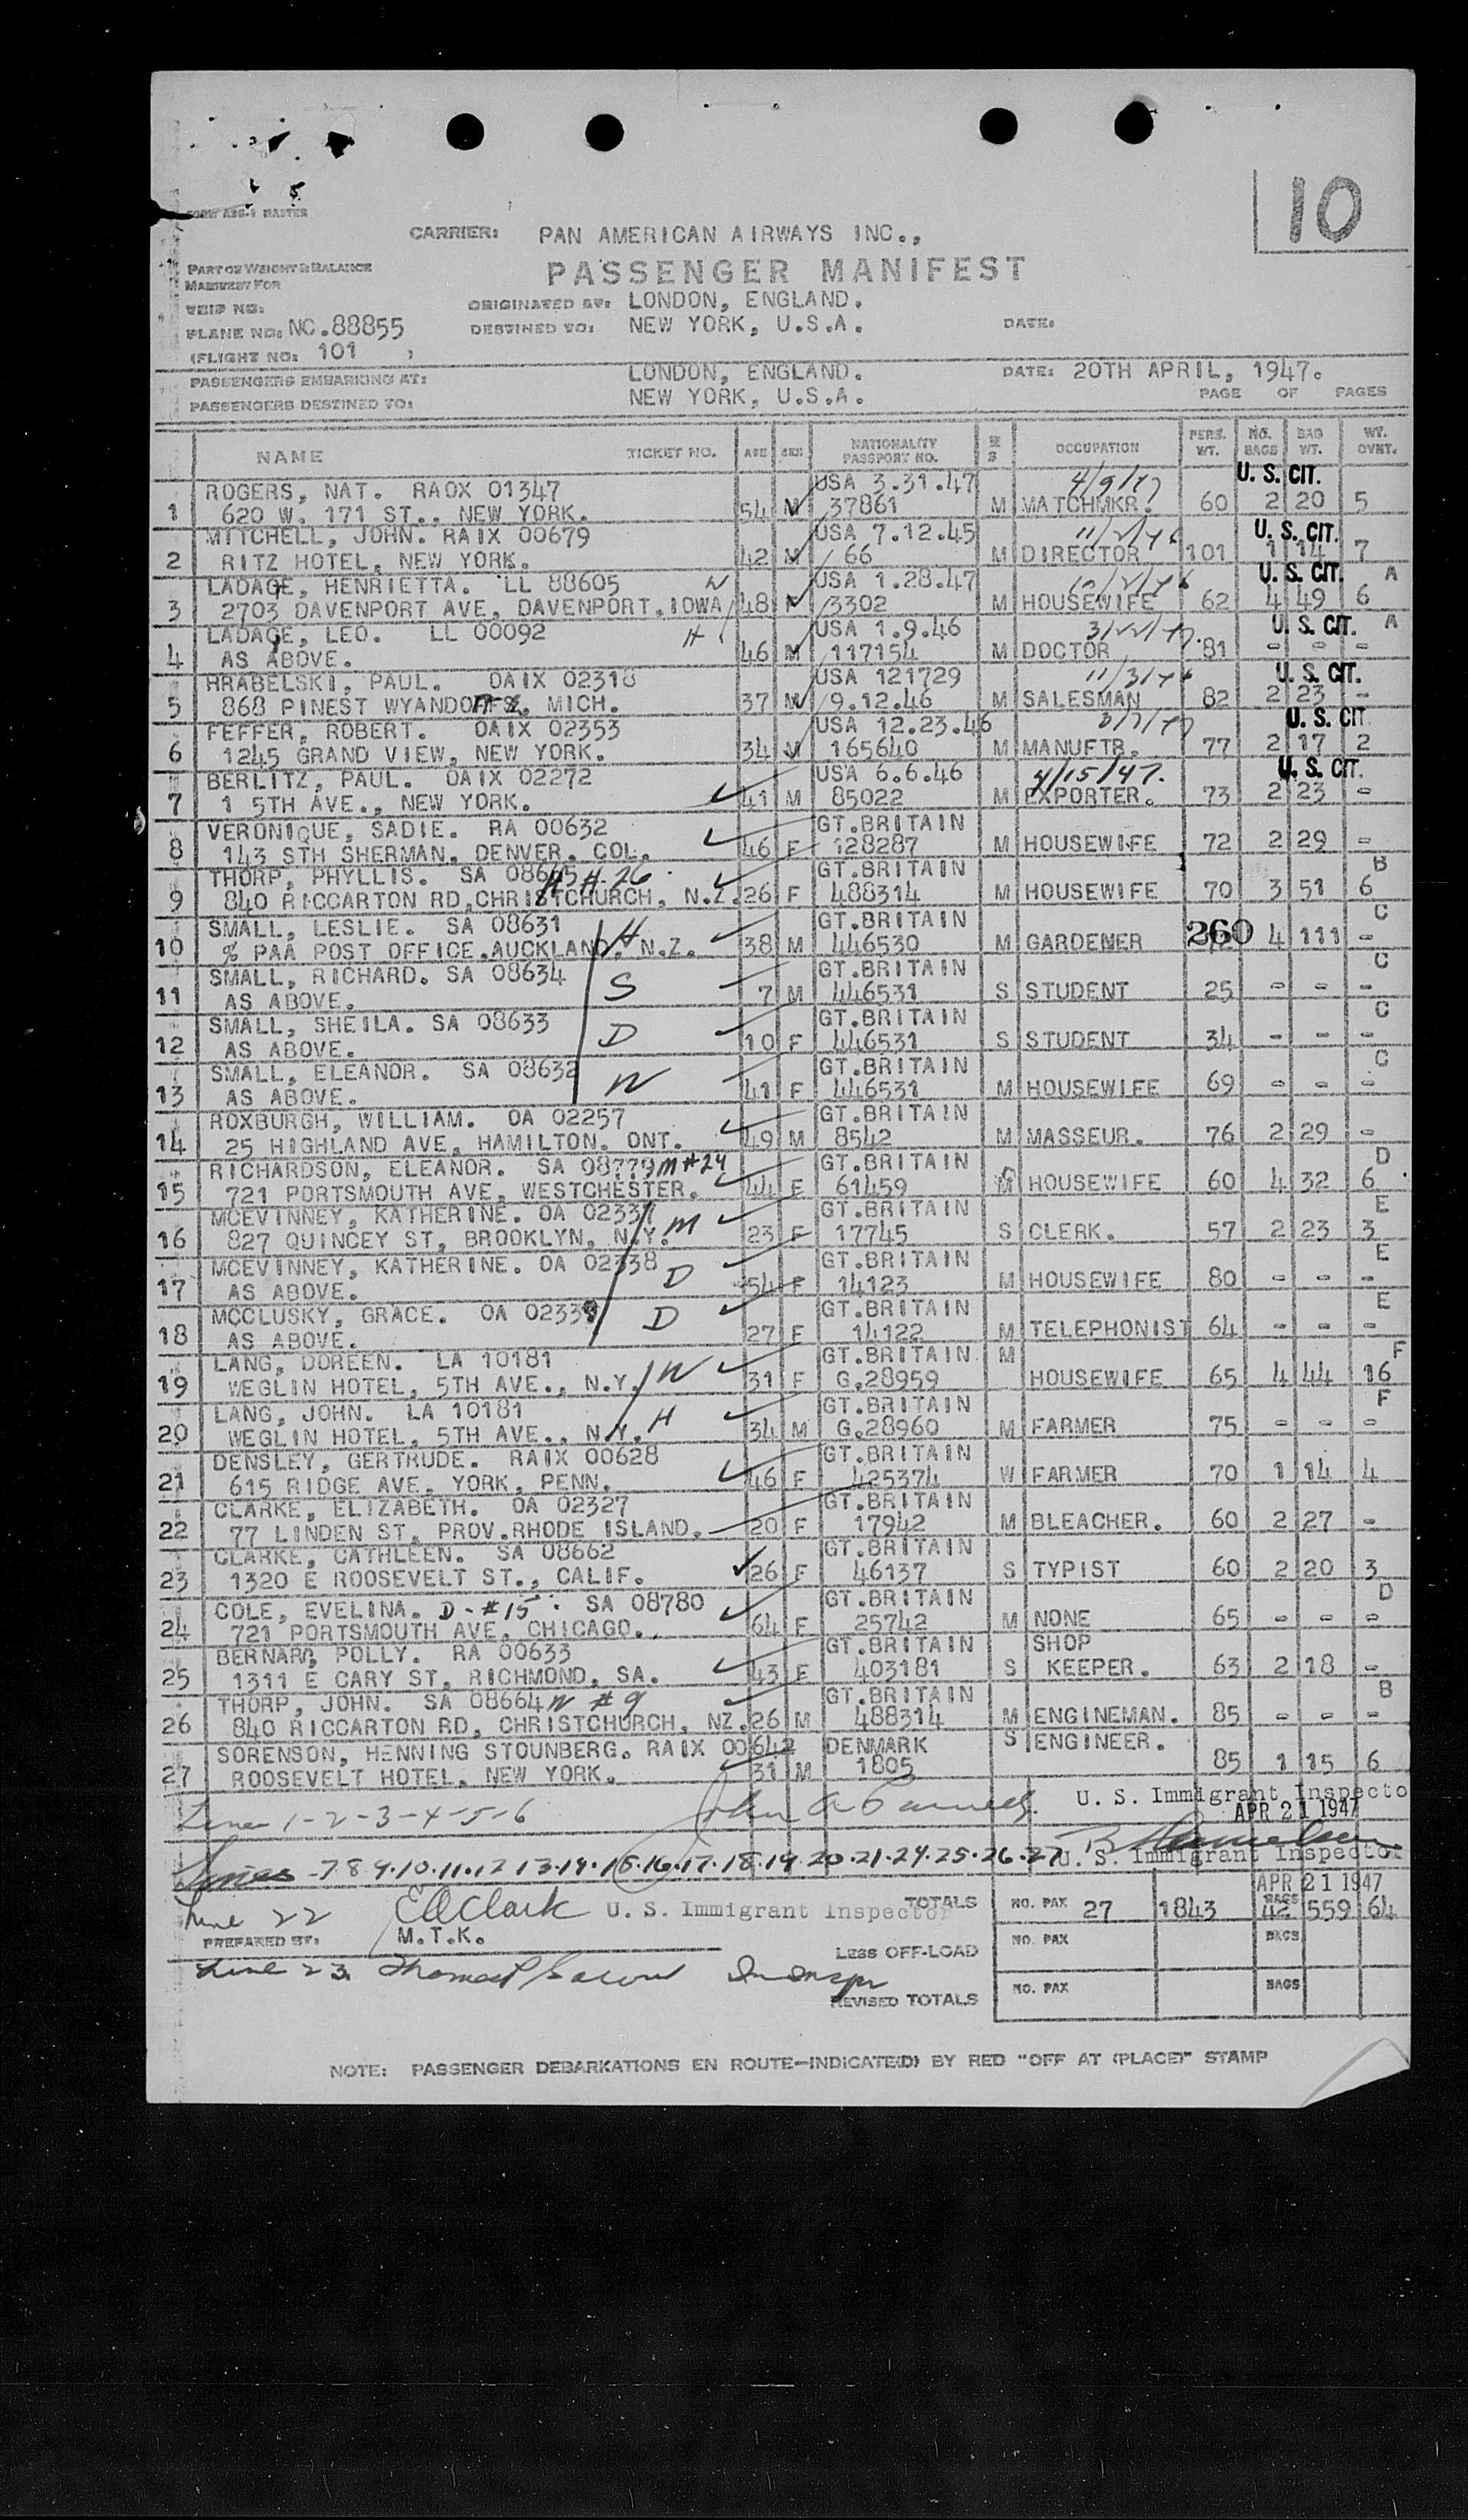 10
FORM ABS-1 MASTER
CARRIER: PAN AMERICAN AIRWAYS INC.,
PART OF WEIGHT & BALANCE
MANIFEST FOR
PASSENGER MANIFEST
TRIP NO:
ORIGINATED AT: LONDON, ENGLAND.
PLANE NO: NC.88855
DESTINED TO: NEW YORK, U.S.A. DATE:
(FLIGHT NO: 101 )
PASSENGERS EMBARKING AT: LONDON, ENGLAND. DATE: 20TH APRIL, 1947.
PASSENGERS DESTINED TO: NEW YORK, U.S.A. PAGE OF PAGES
NAME TICKET NO. AGE SEX NATIONALITY PASSPORT NO. OCCUPATION PERS. WT. NO. BAGS BAG WT. WT. OVNT.
ROGERS, NAT. RAOX 01347 USA 3.31.47 4/9/47 U. S. CIT.
1 620 W. 171 ST., NEW YORK. 54 M 37861 M MATCHMKR. 60 2 20 5
MITCHELL, JOHN. RAIX 00679 USA 7.12.45 11/2/46 U. S. CIT.
2 RITZ HOTEL, NEW YORK. 42 M 66 M DIRECTOR 101 1 14 7
LADAGE, HENRIETTA. LL 88605 W USA 1.28.47 10/2/46 U. S. CIT. A
3 2703 DAVENPORT AVE, DAVENPORT, IOWA 48 F 3302 M HOUSEWIFE 62 4 49 6
LADAGE, LEO. LL 00092 H USA 1.9.46 3/22/47. U. S. CIT. A
4 AS ABOVE. 46 M 117154 M DOCTOR 81 - - -
HRABELSKI, PAUL. OAIX 02318 USA 121729 11/3/46 U. S. CIT.
5 868 PINEST WYANDO MICH. 37 M 9.12.46 M SALESMAN 82 2 23 -
FEFFER, ROBERT. OAIX 02353 USA 12.23.46 3/7/47 U. S. CIT
6 1245 GRAND VIEW, NEW YORK. 34 M 165640 M MANUFTR. 77 2 17 2
BERLITZ, PAUL. OAIX 02272 USA 6.6.46 4/15/47. U. S. CIT.
7 1 5TH AVE., NEW YORK. 41 M 85022 M EXPORTER. 73 2 23 -
VERONIQUE, SADIE. RA 00632 GT.BRITAIN
8 143 STH SHERMAN, DENVER. COL. 46 F 128287 M HOUSEWIFE 72 2 29 -
THORP, PHYLLIS. SA H #26 GT.BRITAIN B
9 840 RICCARTON RD,CHRISTCHURCH, N.Z. 26 F 488314 M HOUSEWIFE 70 3 51 6
SMALL, LESLIE. SA 08631 H GT.BRITAIN C
10 % PAA POST OFFICE,AUCKLAND. N.Z. 38 M 446530 M GARDENER 260 4 111 -
SMALL, RICHARD. SA 08634 S GT.BRITAIN C
11 AS ABOVE. 7 M 446531 S STUDENT 25 - - -
SMALL, SHEILA. SA 08633 D GT.BRITAIN C
12 AS ABOVE. 10 F 446531 S STUDENT 34 - - -
SMALL, ELEANOR. SA 08632 W GT.BRITAIN C
13 AS ABOVE. 41 F 446531 M HOUSEWIFE 69 - - -
ROXBURGH, WILLIAM. OA 02257 GT.BRITAIN
14 25 HIGHLAND AVE, HAMILTON. ONT. 49 M 8542 M MASSEUR. 76 2 29 -
RICHARDSON, ELEANOR. SA 08779 M #24 GT.BRITAIN D
15 721 PORTSMOUTH AVE, WESTCHESTER. 44 F 61459 M HOUSEWIFE 60 4 32 6
MCEVINNEY, KATHERINE. OA 02337 M GT.BRITAIN E
16 827 QUINCEY ST, BROOKLYN, N.Y. 23 F 17745 S CLERK. 57 2 23 3
MCEVINNEY, KATHERINE. OA 02338 D GT.BRITAIN E
17 AS ABOVE. 54 F 14123 M HOUSEWIFE 80 - - -
MCCLUSKY, GRACE. OA 02339 D GT.BRITAIN E
18 AS ABOVE. 27 F 14122 M TELEPHONIST 64 - - -
LANG, DOREEN. LA 10181 W GT.BRITAIN M F
19 WEGLIN HOTEL, 5TH AVE., N.Y. 31 F G.28959 HOUSEWIFE 65 4 44 16
LANG, JOHN. LA 10181 H GT.BRITAIN F
20 WEGLIN HOTEL, 5TH AVE., N.Y. 34 M G.28960 M FARMER 75 - - -
DENSLEY, GERTRUDE. RAIX 00628 GT.BRITAIN
21 615 RIDGE AVE, YORK, PENN. 46 F 425374 W FARMER 70 1 14 4
CLARKE, ELIZABETH. OA 02327 GT.BRITAIN
22 77 LINDEN ST, PROV.RHODE ISLAND. 20 F 17942 M BLEACHER. 60 2 27 -
CLARKE, CATHLEEN. SA 08662 GT.BRITAIN
23 1320 E ROOSEVELT ST., CALIF. 26 F 46137 S TYPIST 60 2 20 3
COLE, EVELINA. D - #15 SA 08780 GT.BRITAIN D
24 721 PORTSMOUTH AVE, CHICAGO. 64 F 25742 M NONE 65 - - -
BERNARD, POLLY. RA 00633 GT.BRITAIN SHOP
25 1311 E CARY ST, RICHMOND, SA. 43 F 403181 S KEEPER. 63 2 18 -
THORP, JOHN. SA 08664 W #9 GT.BRITAIN B
26 840 RICCARTON RD, CHRISTCHURCH, NZ. 26 M 488314 M ENGINEMAN. 85 - - -
SORENSON, HENNING STOUNBERG. RAIX 00642 DENMARK S ENGINEER.
27 ROOSEVELT HOTEL, NEW YORK. 31 M 1805 85 1 15 6
Lines 1-2-3-4-5-6 U. S. Immigrant Inspecto
APR 21 1947
Lines 7 8 9.10.11.12 13.14.15.16.17.18.19.20.21.24.25.26.27 U. S. Immigrant Inspector
APR 21 1947
Line 22 E Clark U. S. Immigrant Inspector TOTALS NO. PAX 27 1843 BAGS 42 559 64
PREPARED BY: M.T.K.
LESS OFF-LOAD NO. PAX BAGS
Line 23
REVISED TOTALS NO. PAX BAGS
NOTE: PASSENGER DEBARKATIONS EN ROUTE—INDICATE(D) BY RED "OFF AT (PLACE)" STAMP